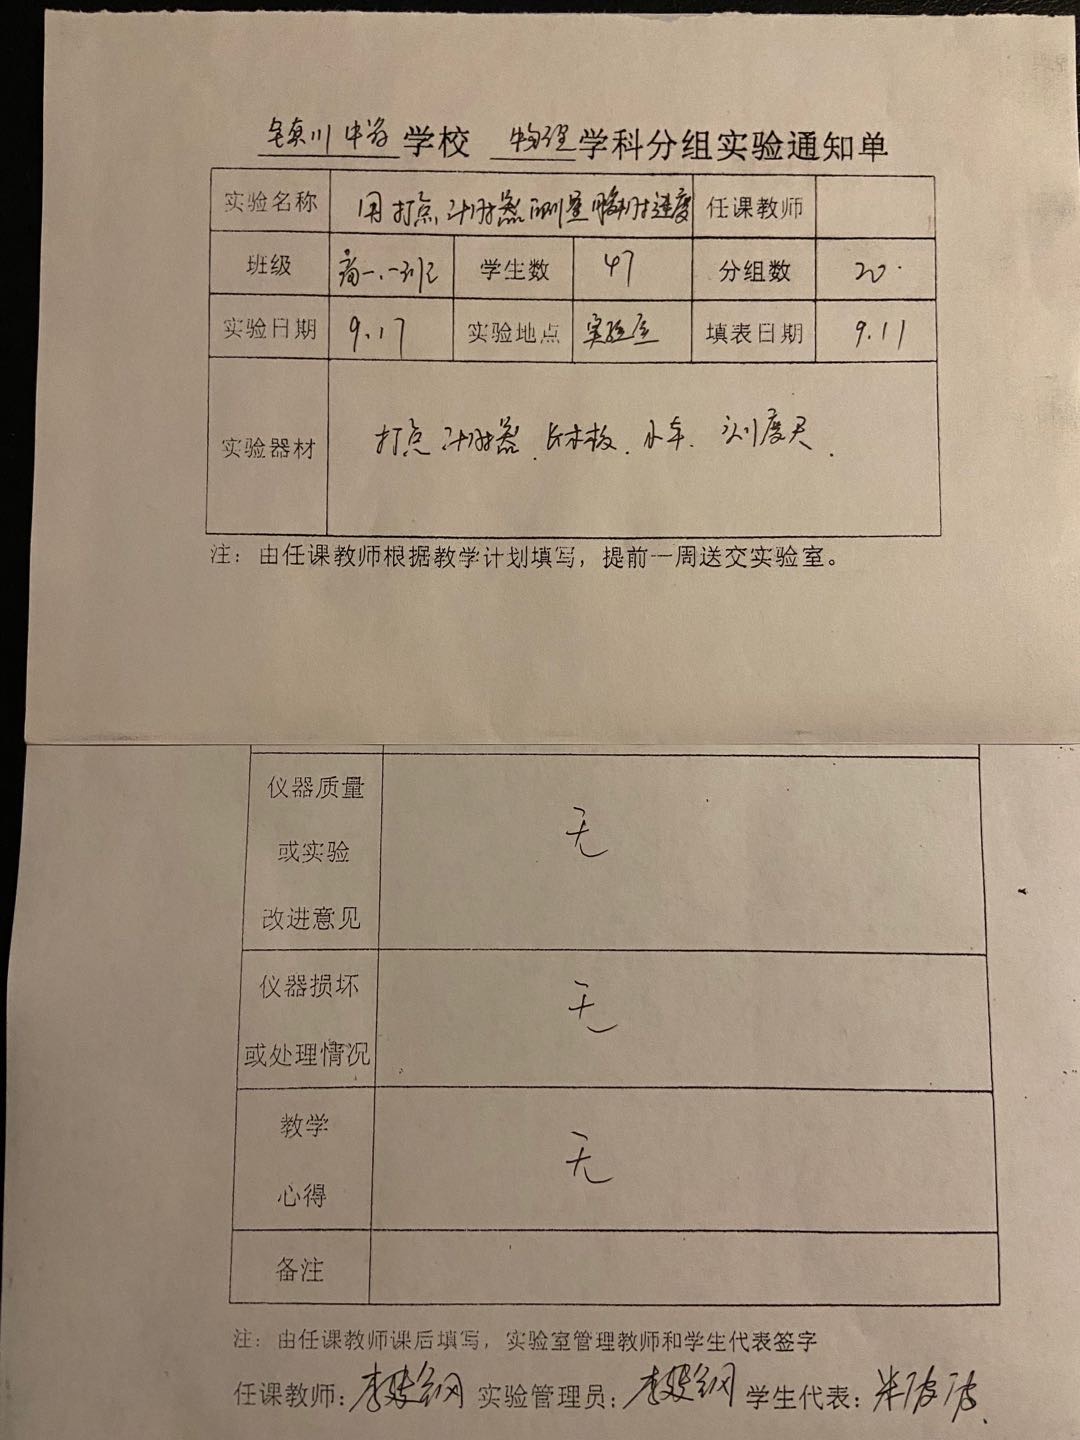 镇川中学学校 物理学科分组实验通知单
实验名称 用打点计时器测量瞬时速度 任课教师
班级 高一.一班 学生数 47 分组数 20.
实验日期 9.17 实验地点 实验室 填表日期 9.11
实验器材 打点计时器.长木板.小车.刻度尺.
注：由任课教师根据教学计划填写，提前一周送交实验室。
仪器质量
或实验 无
改进意见
仪器损坏 无
或处理情况
教学 无
心得
备注
注：由任课教师课后填写，实验室管理教师和学生代表签字
任课教师：李建钢 实验管理员：李建钢 学生代表：